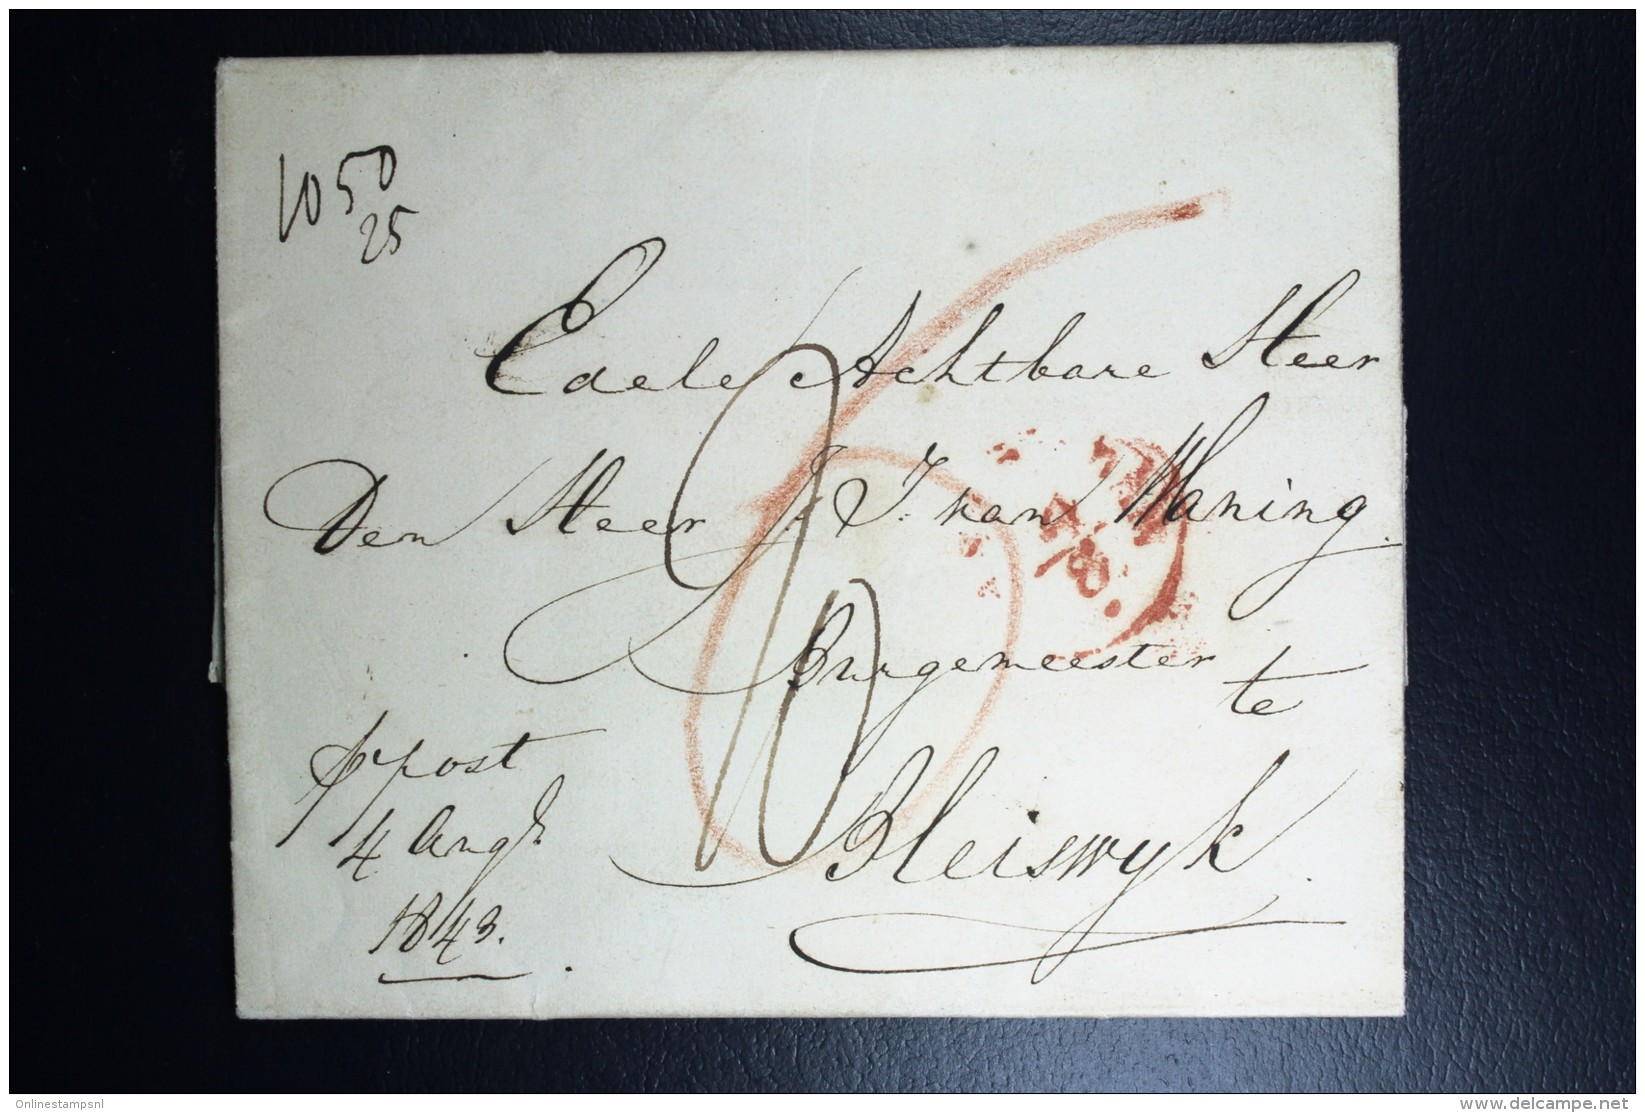 1050
25
Edele Achtbare Heer
Den Heer J. J. van Waning
Burgemeester
te
Bleiswyk
pr post
4 Augs
1843.
4/8.
Onlinestampsnl
www.delcampe.net